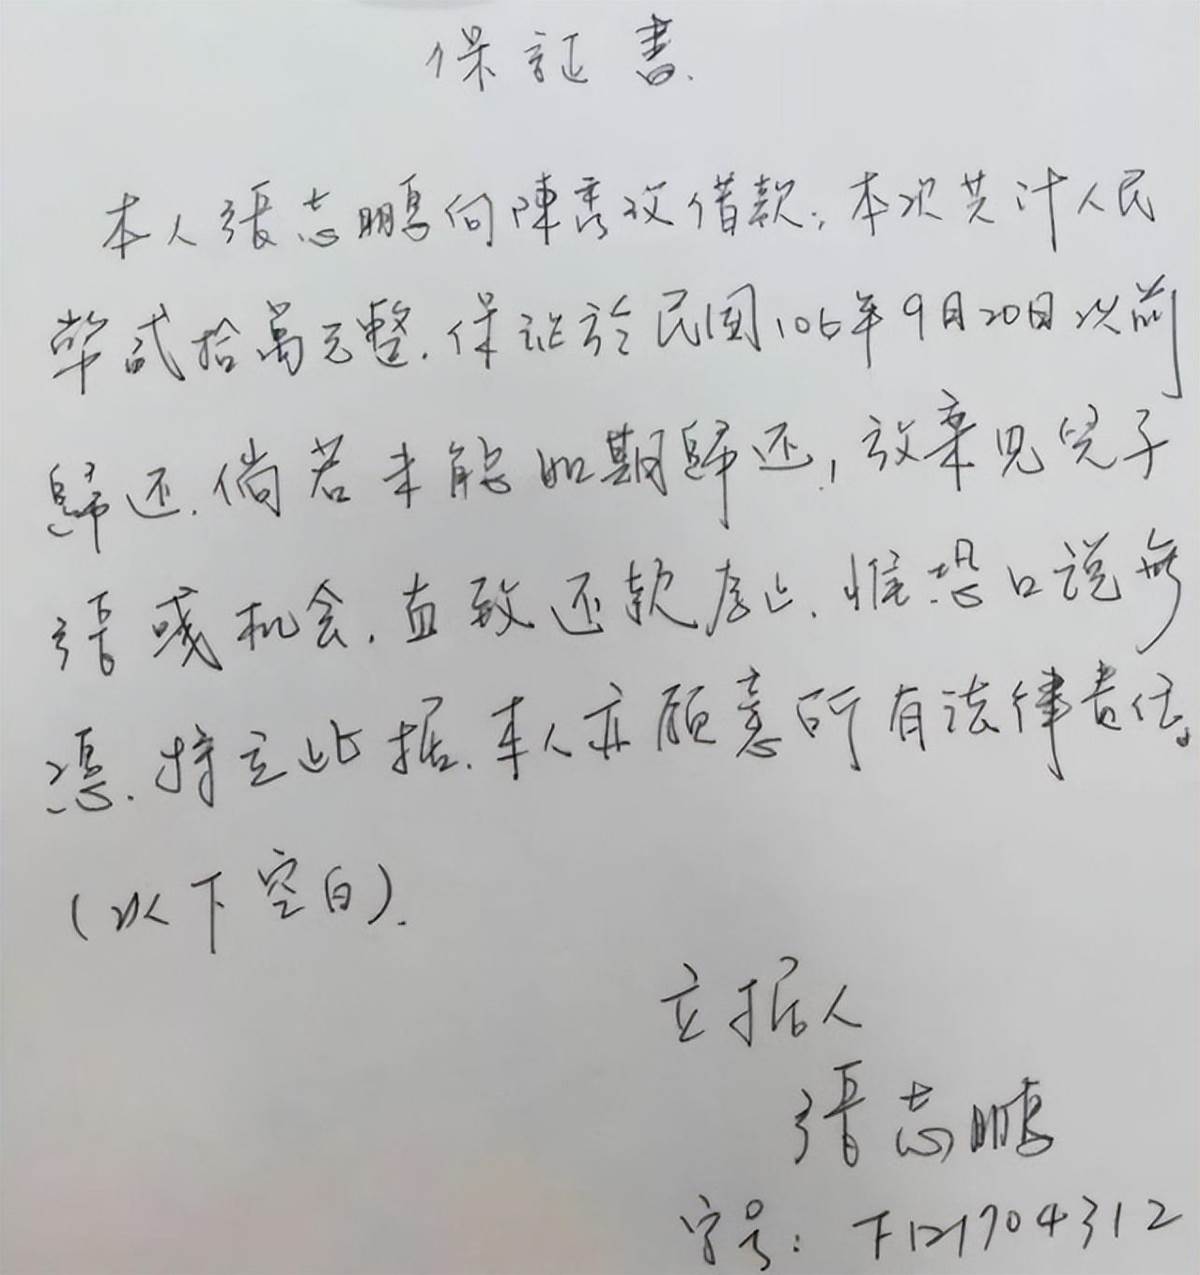 保証書.
本人張志鵬向陳秀玫借款,本次共计人民
幣貳拾萬元整.保证於民国106年9月20日以前
歸还.倘若未能如期歸还,放棄见兒子
張彧机会.直致还款為止.惟恐口说無
憑.特立此据.本人亦願意所有法律責任。
(以下空白).
立据人
張志鵬
字号:F121704312